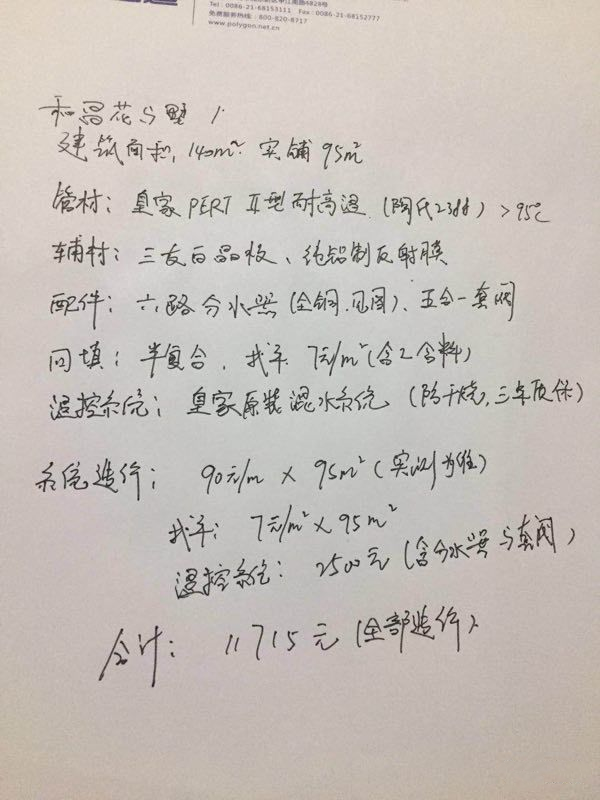 4828号
Tel : 0086-21-68153111 Fax : 0086-21-68152777
免费服务热线: 800-820-8717
www.polygon.net.cn
和昌花与墅
建筑面积, 140m² 实铺 95m²
管材: 皇家 PERT II型耐高温 (陶氏2388) >95℃
辅材: 三友白晶板、纯铝制反射膜
配件: 六路分水器 (全铜.见图)、五合一套阀
回填: 半复合, 找平 7元/m² (含工含料)
温控系统: 皇家原装混水系统 (防干烧, 三年质保)
系统造价: 90元/m × 95m² (实测为准)
找平: 7元/m² × 95m²
温控系统: 2500元 (含分水器与套阀)
合计: 11715元 (全部造价)